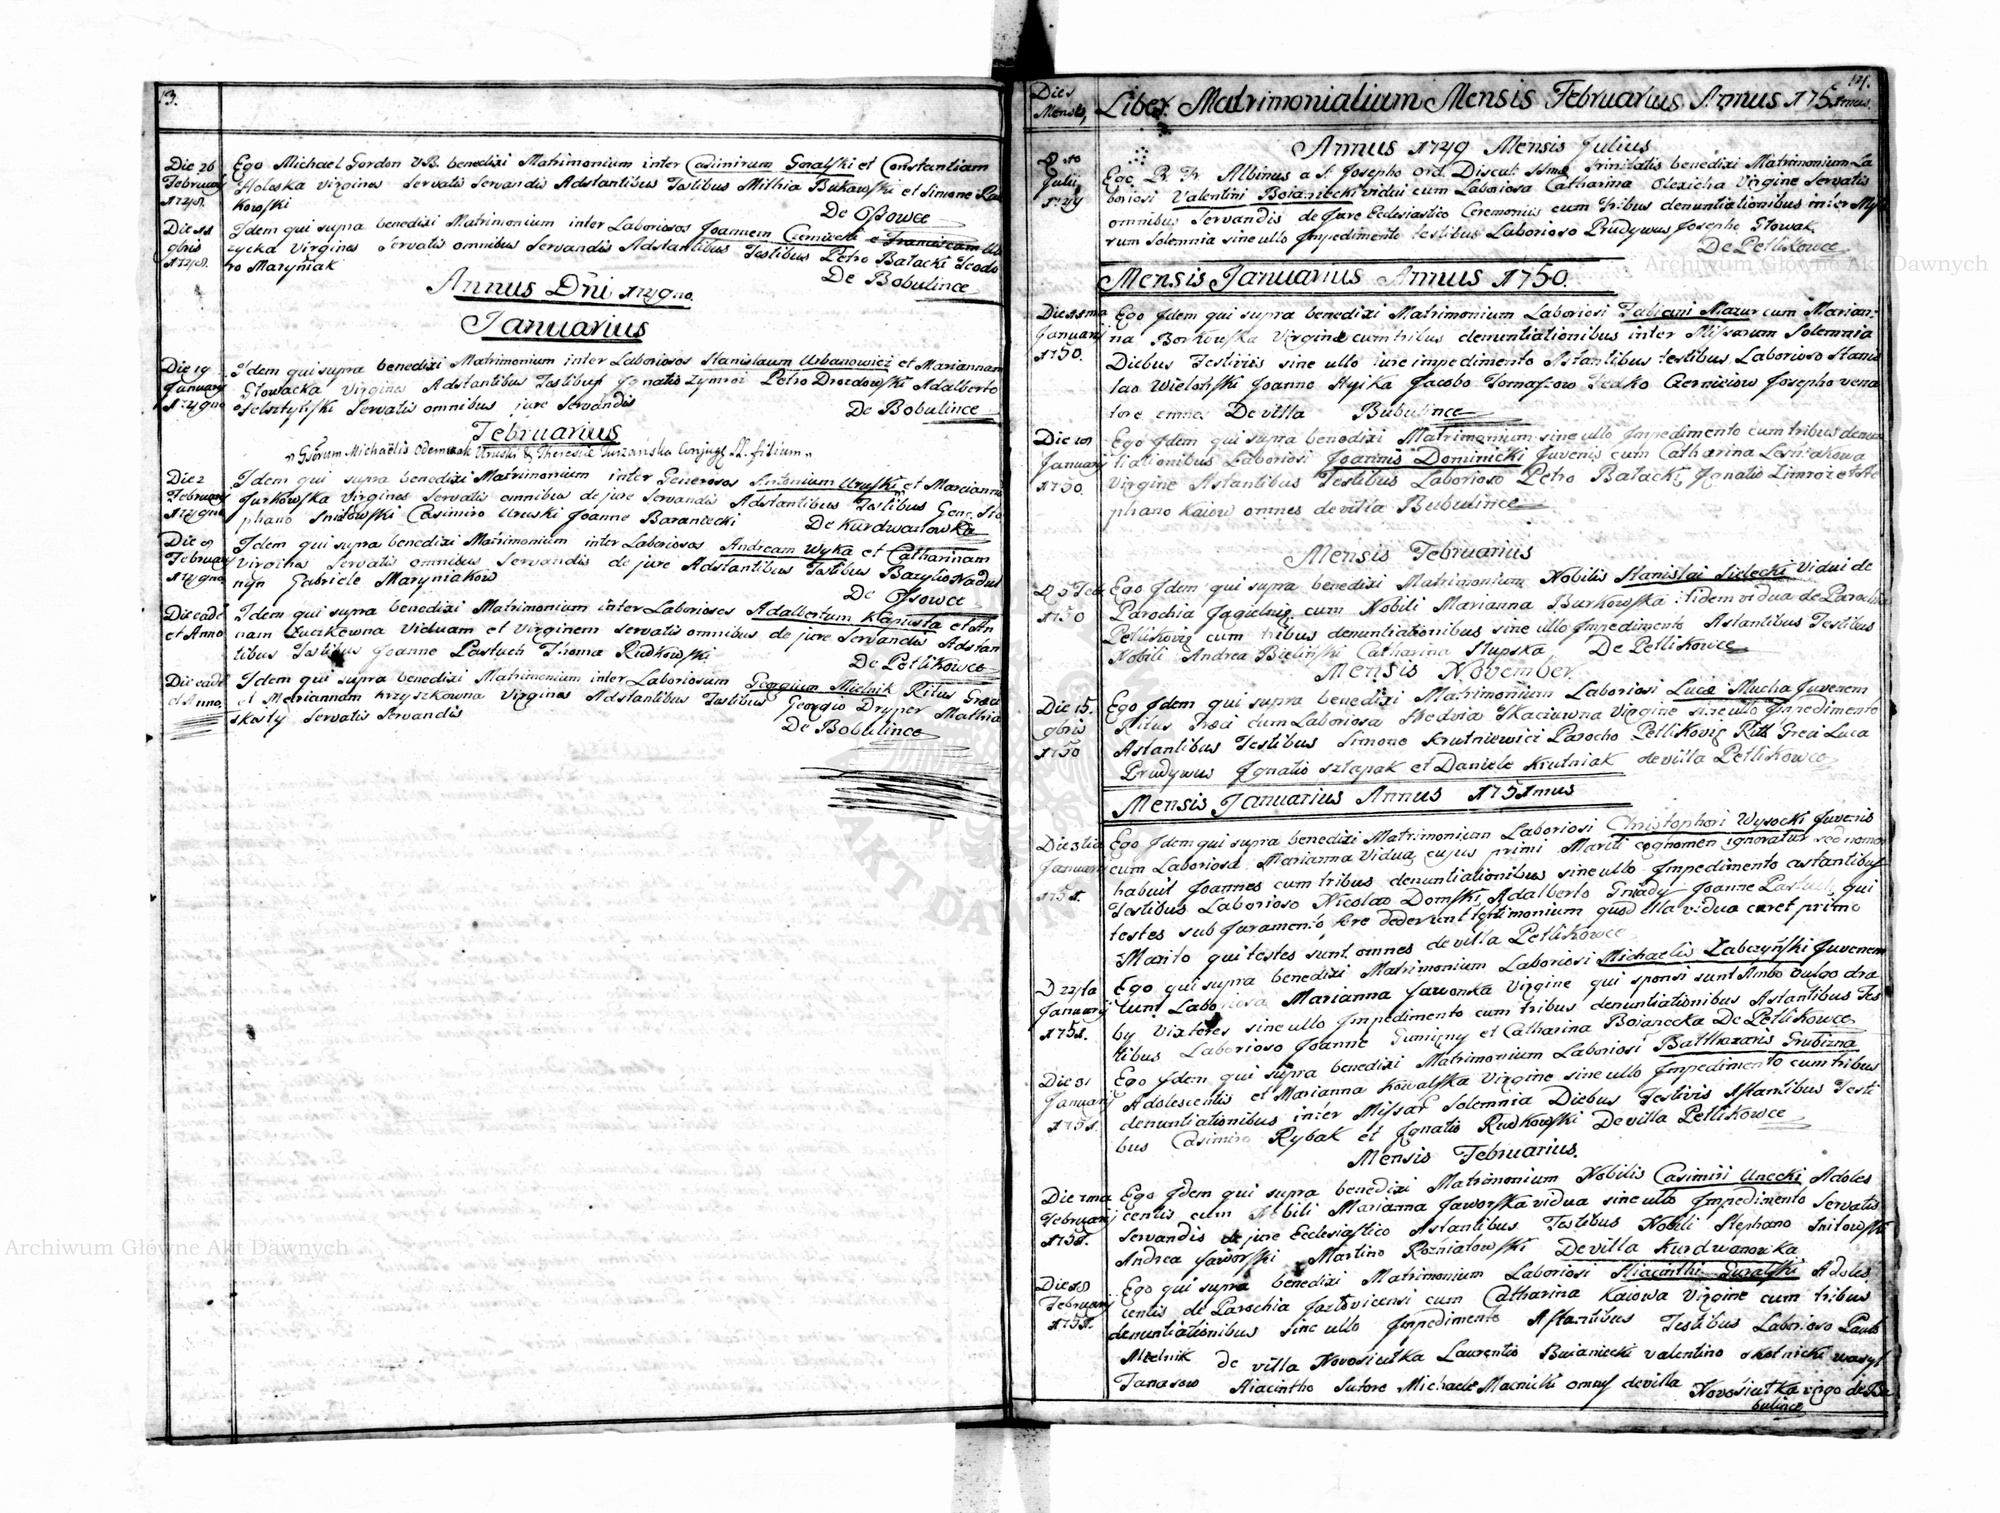 13.
Die 26 Ego Michael Gordon VB benedixi Matrimonium inter Casimirum Goralski et Constantiam
February Holeska virgines servatis servandis Adstantibus Testibus Mathia Bukowski et Simone
1748. kowski De Ossowce
Idem qui supra benedixi Matrimonium inter Laboriosos Joannem Czerniecki e Franciscam
gbris zycka Virgines servatis omnibus servandis Adstantibus Testibus Petro Batacki Teodo
1748. ro Maryniak De Bobulince
Annus Dni 1749no.
Januarius
Die 19 Idem qui supra benedixi Matrimonium inter Laboriosos Stanislaum Urbanowicz et Mariannam
January Głowacka Virgines Adstantibus Testibus Ignatio Zymroz Petro Drozdowski Adalberto
1749no servatis omnibus jure servandis De Bobulince
Februarius
Michaëlis Uruski & Theresiæ conjugū filium
Die 2 Idem qui supra benedixi Matrimonium inter Generosos Antonium Uruski et Mariannam
February Jurkowska Virgines servatis omnibus de jure servandis Adstantibus Testibus Gener. Ste
1749no phano Snitowski Casimiro Uruski Joanne Baraniecki De Kurdwanowka
Die 9 Idem qui supra benedixi Matrimonium inter Laboriosos Andream Wyka et Catharinam
February Virgines servatis omnibus servandis de jure Adstantibus Testibus Bazylio
1749no Gabriele Maryniakow De Ossowce
Die eadē Idem qui supra benedixi Matrimonium inter Laborioses Adalbertum Kapusta et An
et Anno nam Łuczkewna Viduam et Virginem servatis omnibus de jure servandis Adstan
tibus Testibus Joanne Pastuch Thoma Rudkowski De Petlikowce
Die eadē Idem qui supra benedixi Matrimonium inter Laboriosum Georgium Mielnik Ritus Græci
et Anno. et Mariannam Krzyszkowna Virgines Adstantibus Testibus Georgio Dryper Mathia
skosty servatis servandis De Bobulince
14.
Dies Mensis, Liber Matrimonialium Mensis Februarius Annus 1751mus.
Annus 1749 Mensis Julius
D 10 Ego P. Fr. Albinus a S. Josepho Ord. Discal: SSmæ Trinitatis benedixi Matrimonium La
Julii boriosi Valentini Boianiecki vidui cum Laboriosa Catharina Olexicha Virgine servatis
1749 omnibus servandis de Jure Ecclesiastico Ceremoniis cum tribus denuntiationibus inter Missa
rum solemnia sine ullo Impedimento testibus Laborioso Prudywus Josepho Głowak
De Petlikowce
Mensis Januarius Annus 1750.
Die 11ma Ego Idem qui supra benedixi Matrimonium Laboriosi Fabiani Mazur cum Marian-
January na Borkowska Virgine cum tribus denuntiationibus inter Missarum solemnia
1750. Diebus Festivis sine ullo jure impedimento Astantibus testibus Laborioso Stanis
lao Wielohski Joanne Hyika Jacobo Tomaszow Fedko Czerniciow Josepho vena
tore omnes De villa Bubulince
Die 19 Ego Idem qui supra benedixi Matrimonium sine ullo Impedimento cum tribus denun
January tiationibus Laboriosi Joannis Dominicki Juvenis cum Catharina Lesniakowa
1750. Virgine Astantibus Testibus Laborioso Petro Batacki, Ignatio Zimroz et Ste
phano Kaiow omnes de villa Bubulince
Mensis Februarius
D 5 Feb Ego Idem qui supra benedixi Matrimonium Nobilis Stanislai Sielecki Vidui de
1750 Parochia Jagielnig cum Nobili Marianna Burkowska itidem vidua de Parochia
Petlikoviz cum tribus denuntiationibus sine ullo Impedimento Astantibus Testibus
Nobili Andrea Bieliński Catharina Słupska De Petlikowce
Mensis November
Die 15. Ego Idem qui supra benedixi Matrimonium Laboriosi Lucæ Mucha Juvenem
gbris Ritus Græci cum Laboriosa Hedvia Tkaciuwna Virgine sine ullo Impedimento
1750 Astantibus Testibus Simone Krutniewicz Parocho Petlikoviz Rith Greci Luca
Prudywus Ignatio Sztapak et Daniele Krutniak de villa Petlikowce
Mensis Januarius Annus 1751mus
Die 3tia Ego Idem qui supra benedixi Matrimonium Laboriosi Christophori Wysocki Juvenis
January cum Laboriosa Marianna Vidua cujus primi Mariti cognomen ignoratur sed nomen
1751. habuit Joannes cum tribus denuntiationibus sine ullo Impedimento astantibus
Testibus Laborioso Nicolao Domski, Adalberto Gniady Joanne Pastuch qui
testes sub Juramento fere dederunt testimonium quod illa vidua caret primo
Marito qui testes sunt omnes de villa Petlikowce
D 22da Ego qui supra benedixi Matrimonium Laboriosi Michaelis Zabczyński Juvenem
January cum Laboriosa Marianna Jaworska Virgine qui sponsi sunt Ambo vulgo dra
1751. by vixteres sine ullo Impedimento cum tribus denuntiationibus Astantibus Tes
tibus Laborioso Joanne Guminny et Catharina Boianecka De Petlikowce
Die 31 Ego Idem qui supra benedixi Matrimonium Laboriosi Balthazaris Grubizna
January Adolescentis et Marianna Kowalska Virgine sine ullo Impedimento cum tribus
1751. denuntiationibus inter Missar solemnia Diebus Festivis Astantibus Testi
bus Casimiro Rybak et Ignatio Rudkowski De villa Petlikowce
Mensis Februarius.
Die 1ma Ego Idem qui supra benedixi Matrimonium Nobilis Casimiri Unecki Adoles
February centis cum Nobili Marianna Jaworska vidua sine ullo Impedimento servatis
1751. servandis de jure Ecclesiastico Astantibus Testibus Nobili Stephano Snitowski
Andrea Jaworski Martino Rozniatowski De villa Kurdwanowka
Die 18 Ego qui supra benedixi Matrimonium Laboriosi Hiacinthi Guralski Adoles
February centis de Parochia Jazlovicensi cum Catharina Kaiowa Virgine cum tribus
1751. denuntiationibus sine ullo Impedimento Astantibus Testibus Laborioso Paulo
Mielnik de villa Novosiutka Laurentio Boianiecki Valentino Skotnicki Wasyl
Tanasow Hiacintho Sutore Michaele Macnicki omnes de villa Novosiutka virgo de Bu
bulince
Archiwum Główne Akt Dawnych
Archiwum Główne Akt Dawnych